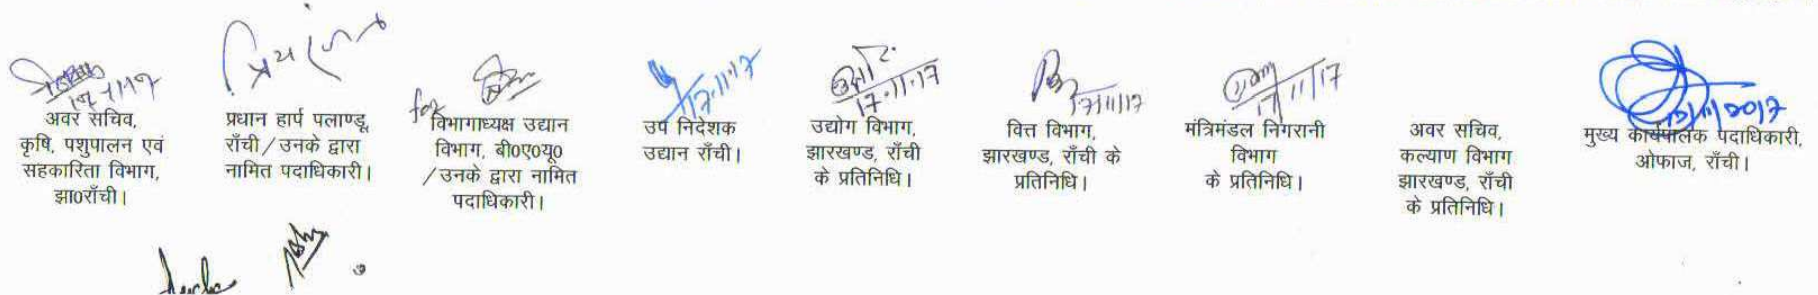 17/11/17
अवर सचिव,
कृषि, पशुपालन एवं
सहकारिता विभाग,
झा0राँची।
प्रधान हार्प पलाण्डू,
राँची/उनके द्वारा
नामित पदाधिकारी।
for
विभागाध्यक्ष उद्यान
विभाग, बी0ए0यू0
/उनके द्वारा नामित
पदाधिकारी।
17.11.17
उप निदेशक
उद्यान राँची।
17.11.17
उद्योग विभाग,
झारखण्ड, राँची
के प्रतिनिधि।
17/11/17
वित्त विभाग,
झारखण्ड, राँची के
प्रतिनिधि।
17/11/17
मंत्रिमंडल निगरानी
विभाग
के प्रतिनिधि।
अवर सचिव,
कल्याण विभाग
झारखण्ड, राँची
के प्रतिनिधि।
मुख्य कार्यपालक पदाधिकारी,
ओफाज, राँची।